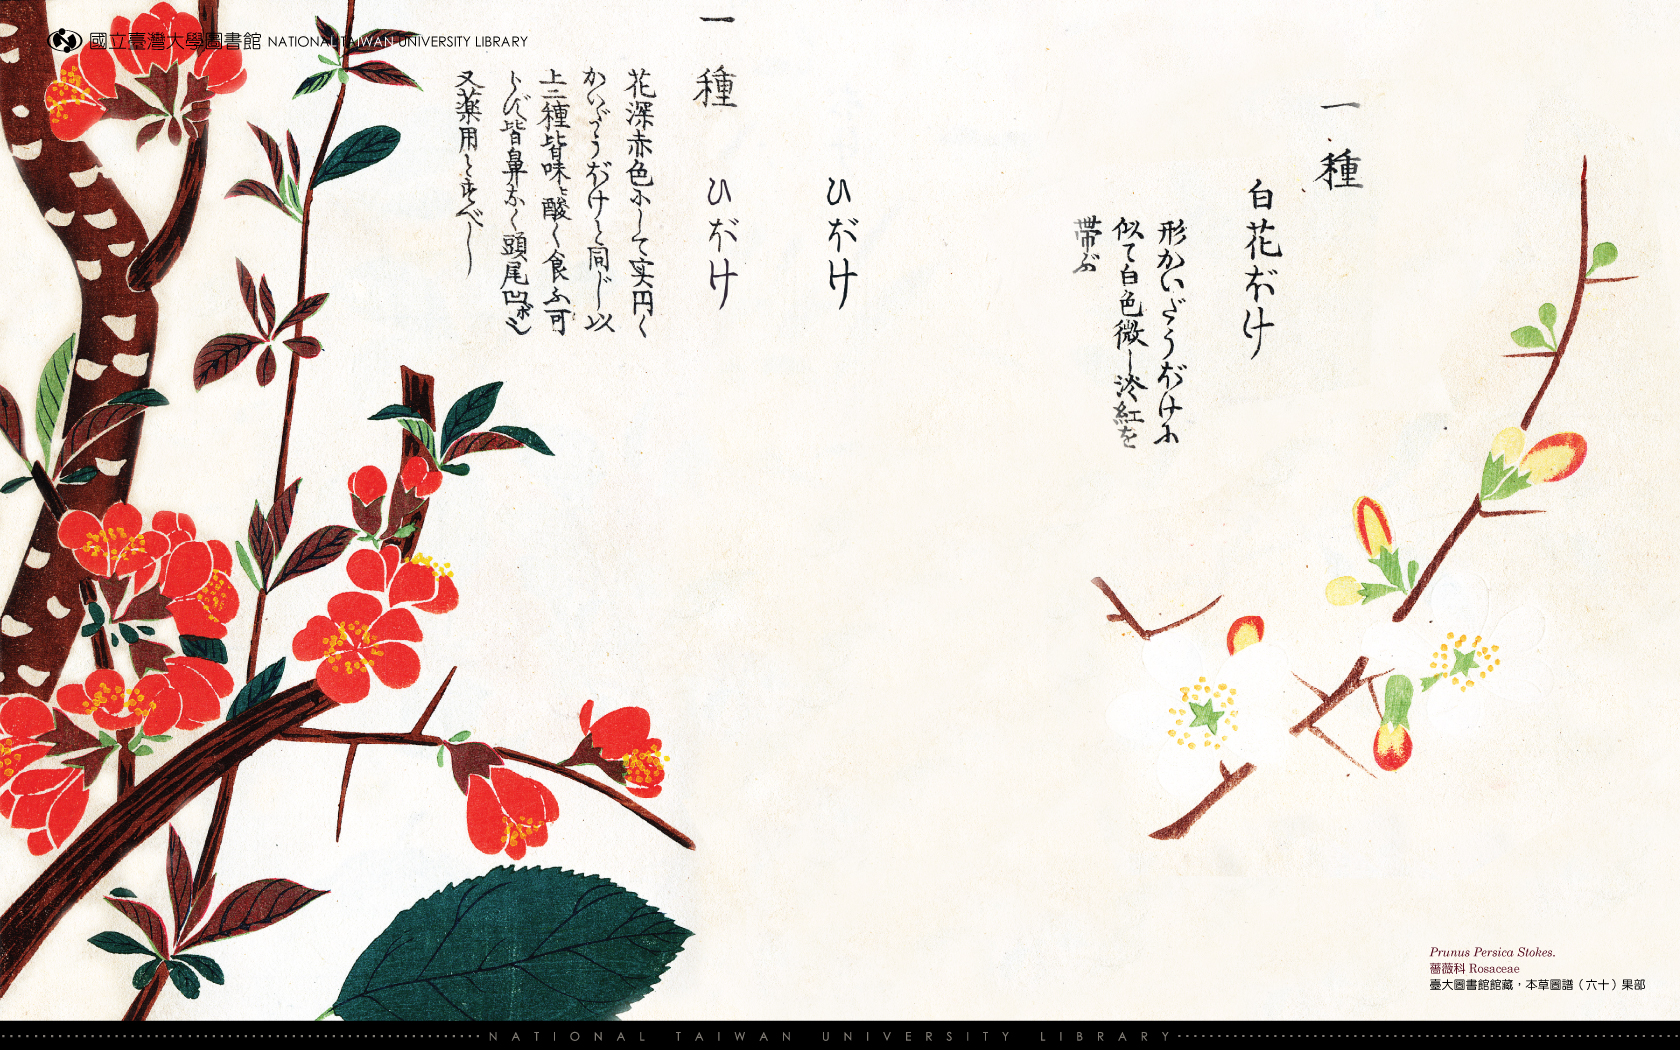 國立臺灣大學圖書館 NATIONAL TAIWAN UNIVERSITY LIBRARY
一種
白花ぼけ
形かいだうぼけに
似て白色微し淡紅を
帯ぶ
ひぼけ
一種 ひぼけ
花深赤色にして実円く
かいだうぼけと同じ以
上二種皆味酸く食ふ可
らず皆鼻なく頭尾凹
又薬用とすべし
Prunus Persica Stokes.
薔薇科 Rosaceae
臺大圖書館館藏，本草圖譜（六十）果部
NATIONAL TAIWAN UNIVERSITY LIBRARY